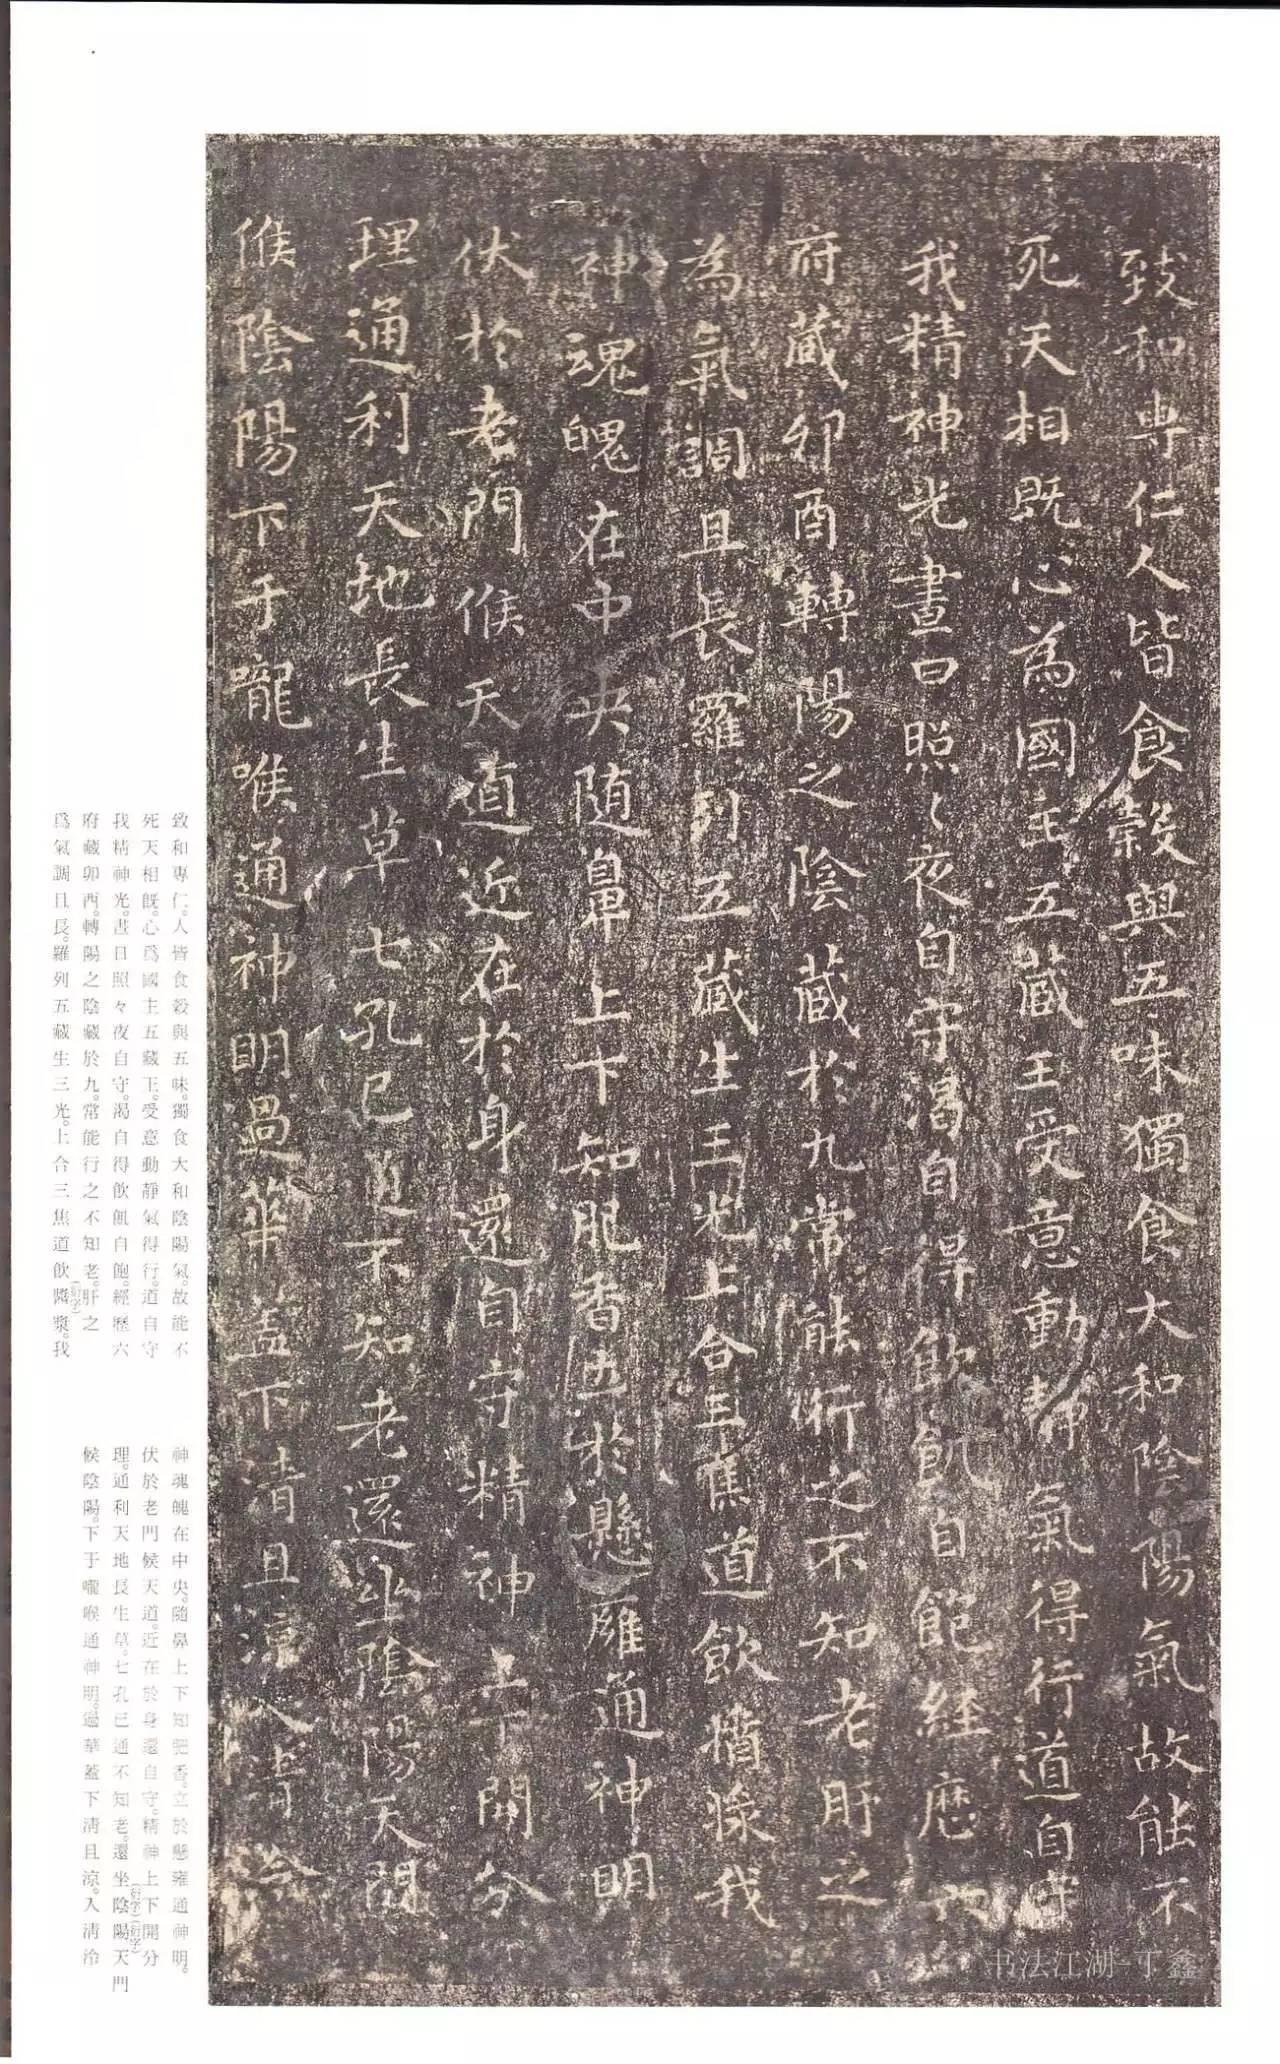 致和專仁人皆食穀與五味獨食大和陰陽氣故能不
死天相既心為國主五藏王受意動靜氣得行道自守
我精神光晝日照々夜自守渴自得飲飢自飽經歷六
府藏卯酉轉陽之陰藏於九常能行之不知老肝之
為氣調且長羅列五藏生三光上合三焦道飲醬漿我
神魂魄在中央隨鼻上下知肥香立於懸雍通神明
伏於老門候天道近在於身還自守精神上下開分
理通利天地長生草七孔已通不知老還坐陰陽天門
候陰陽下于嚨喉通神明過華蓋下清且涼入清泠
致和專仁。人皆食穀與五味。獨食大和陰陽氣。故能不
死天相既。心爲國主五藏王。受意動靜氣得行。道自守
我精神光。晝日照々夜自守。渴自得飲飢自飽。經歷六
府藏卯酉。轉陽之陰藏於九。常能行之不知老。肝之(衍字)
爲氣調且長。羅列五藏生三光。上合三焦道飲醬漿。我
神魂魄在中央。隨鼻上下知肥香。立於懸雍通神明。
伏於老門候天道。近在於身還自守。精神上下開分
理。通利天地長生草。七孔已通不知老。還坐(衍字)陰陽(衍字)天門
候陰陽。下于嚨喉通神明。過華蓋下清且涼。入清泠
书法江湖-丁鑫